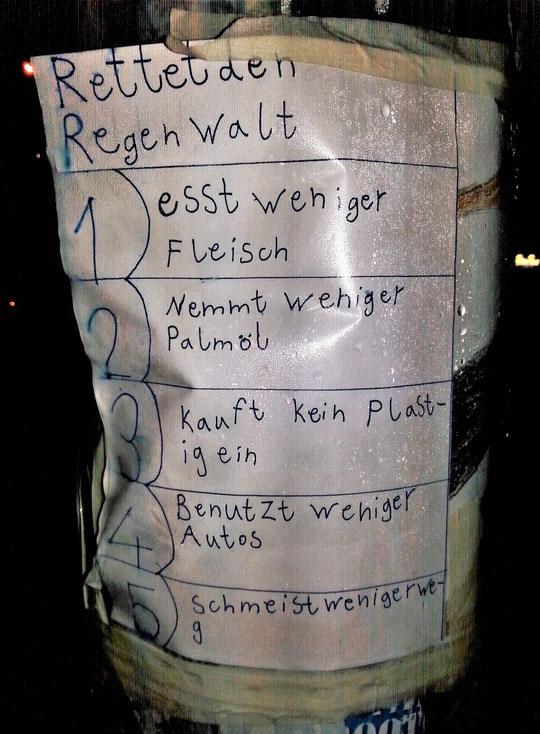 Rettet den
Regen Walt
1 esst weniger
Fleisch
2 Nemmt weniger
Palmöl
3 kauft kein Plast-
ig ein
4 Benutzt weniger
Autos
5 schmeist weniger we-
g